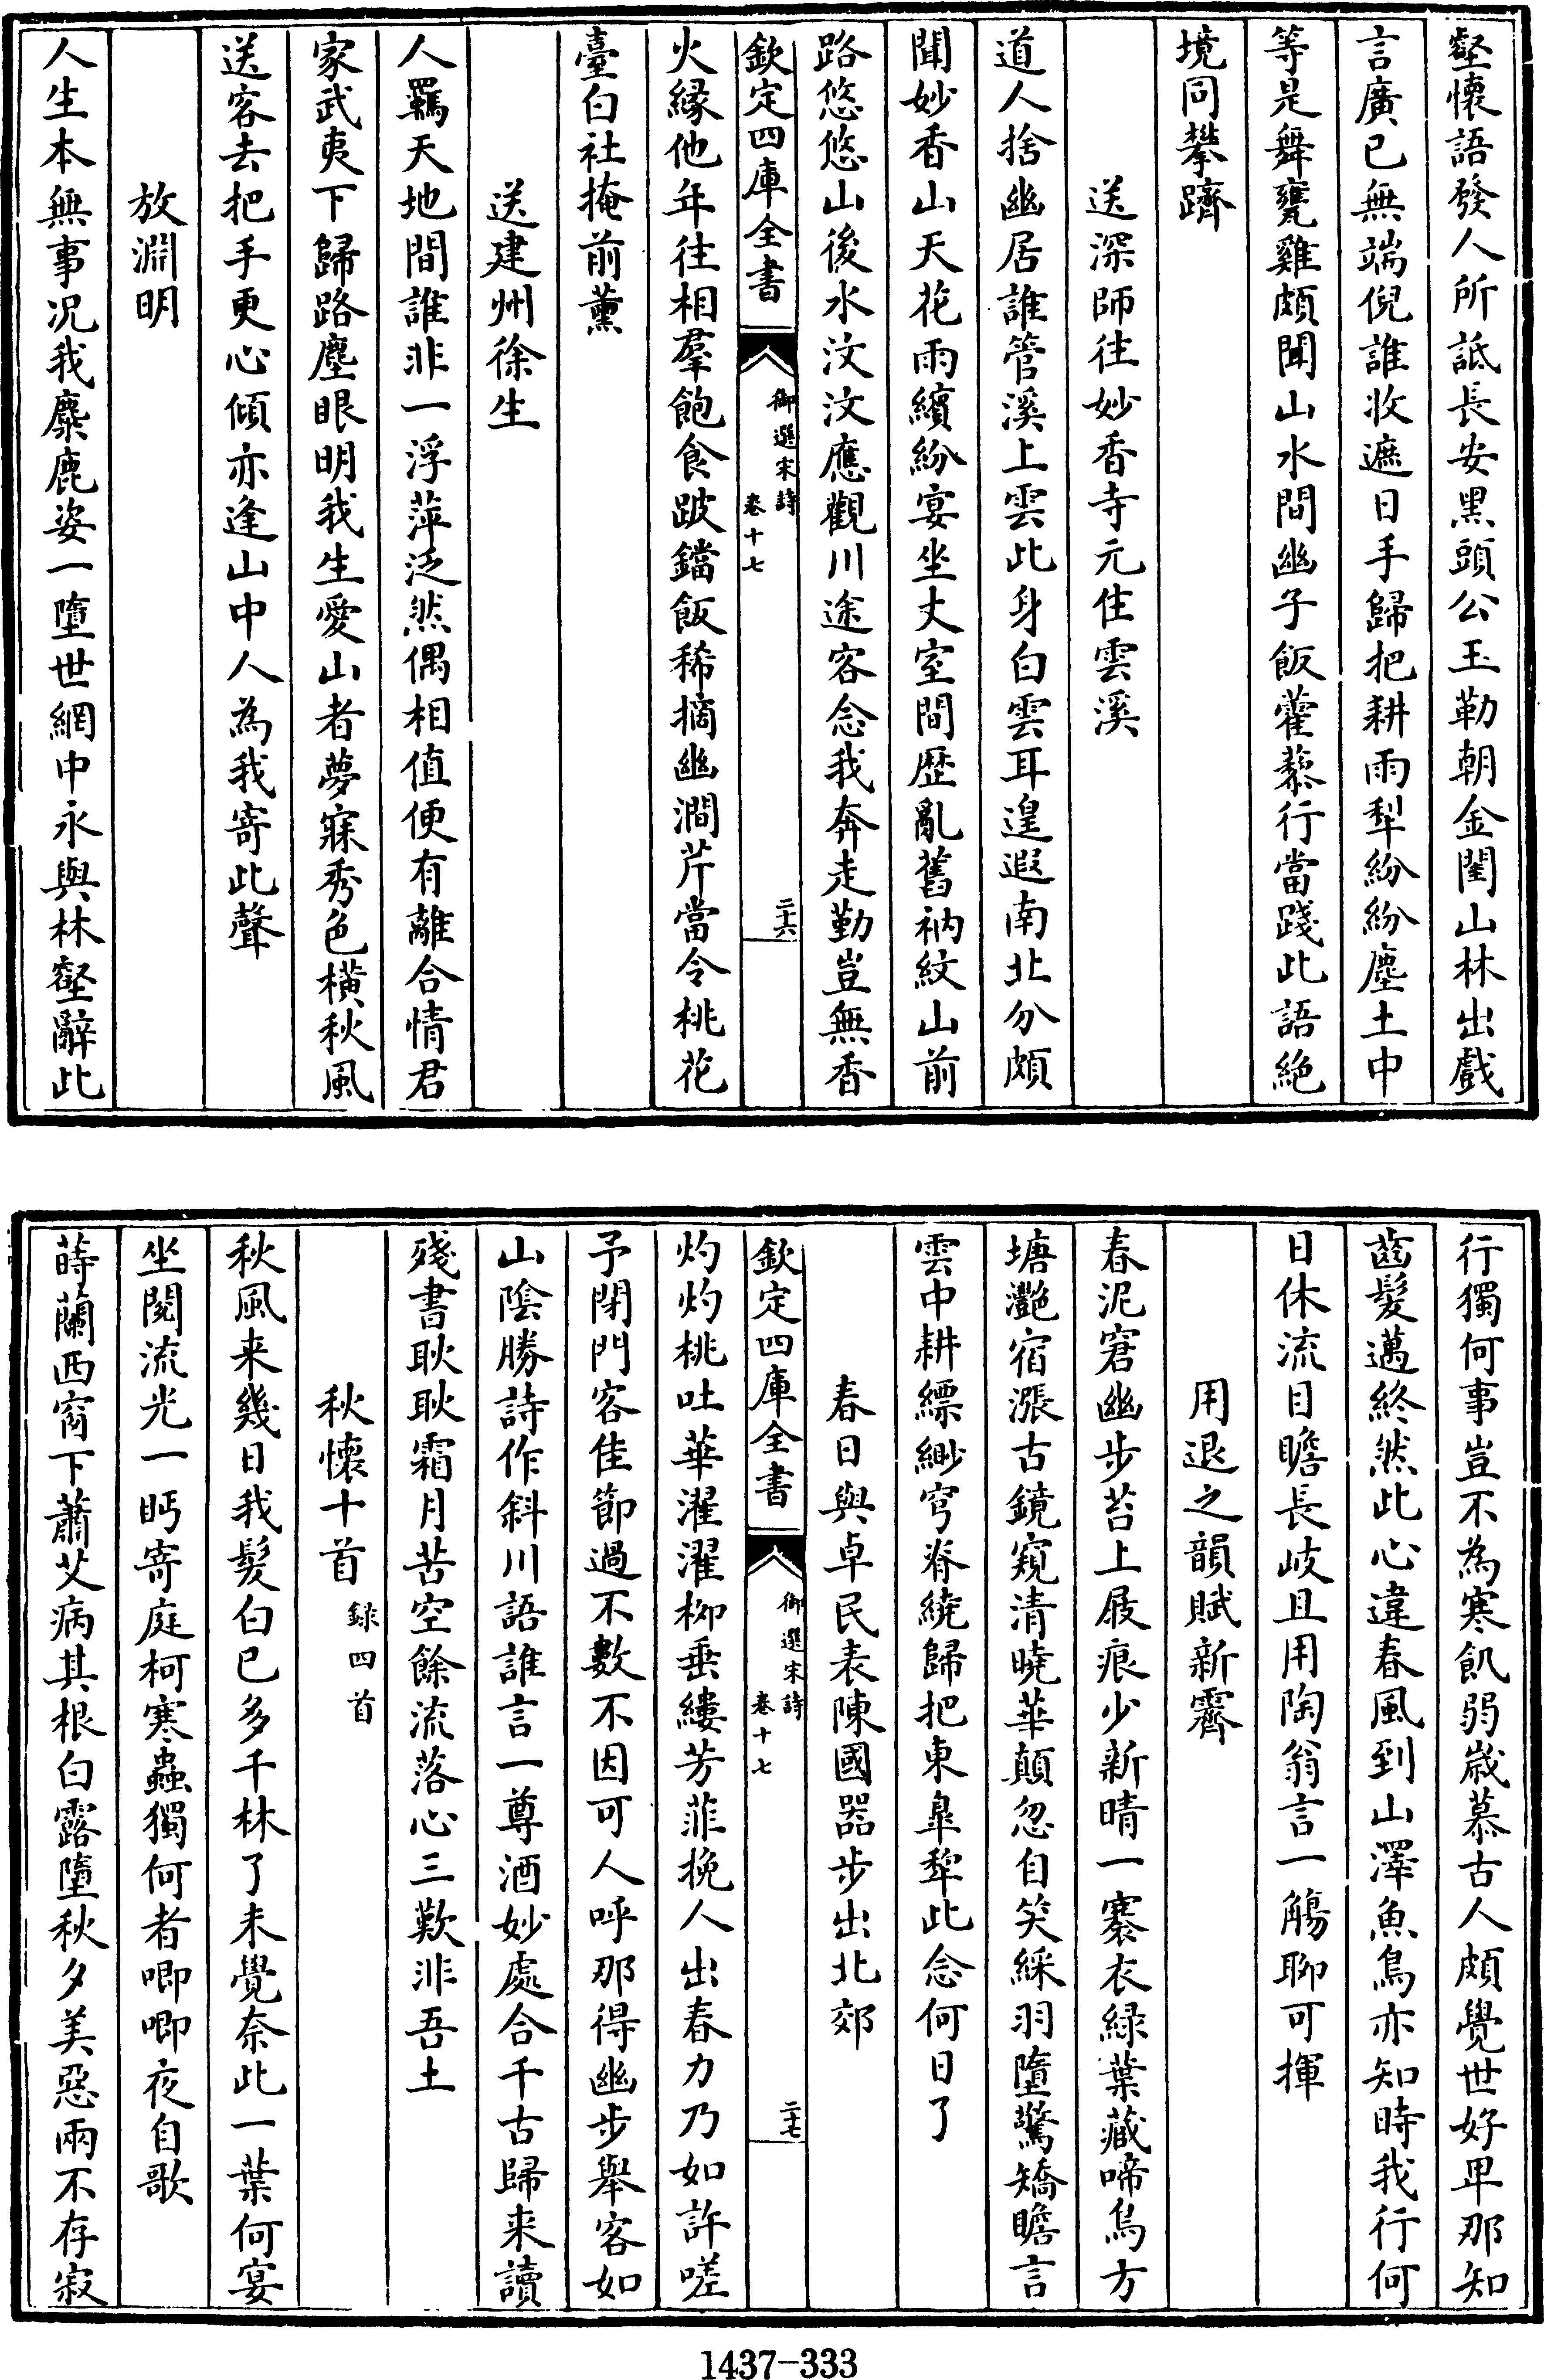 壑懷語發人所詆長安黑頭公玉勒朝金閨山林出戲
言廣已無端倪誰收遮日手歸把耕雨犁紛紛塵土中
等是舞甕雞頗聞山水間幽子飯藿藜行當踐此語絶
境同攀躋
送深師住妙香寺元住雲溪
道人捨幽居誰管溪上雲此身白雲耳遑遐南北分頗
聞妙香山天花雨繽紛宴坐丈室間歴亂舊衲紋山前
路悠悠山後水汶汶應觀川途客念我奔走勤豈無香
欽定四庫全書
御選宋詩
卷十七
二十六
火縁他年往相羣飽食跛鐺飯稀摘幽澗芹當令桃花
臺白社掩前薰
送建州徐生
人羈天地間誰非一浮萍泛然偶相值便有離合情君
家武夷下歸路塵眼明我生愛山者夢寐秀色横秋風
送客去把手更心傾亦逢山中人為我寄此聲
放淵明
人生本無事况我麋鹿姿一墮世網中永與林壑辭此
行獨何事豈不為寒飢弱嵗慕古人頗覺世好卑那知
齒髮邁終然此心違春風到山澤魚鳥亦知時我行何
日休流目瞻長岐且用陶翁言一觴聊可揮
用退之韻賦新霽
春泥窘幽步苔上屐痕少新晴一褰衣緑葉藏啼鳥方
塘灔宿漲古鏡窺清曉華顛忽自笑綵羽墮驚矯瞻言
雲中耕縹緲穹脊繞歸把東臯犂此念何日了
春日與卓民表陳國器步出北郊
欽定四庫全書
御選宋詩
卷十七
二十七
灼灼桃吐華濯濯栁垂縷芳菲挽人出春力乃如許嗟
予閉門客佳節過不數不因可人呼那得幽步舉客如
山隂勝詩作斜川語誰言一尊酒妙處合千古歸来讀
殘書耿耿霜月苦空餘流落心三歎非吾土
秋懷十首 録四首
秋風来幾日我髮白已多千林了未覺奈此一葉何宴
坐閲流光一眄寄庭柯寒蟲獨何者唧唧夜自歌
蒔蘭西窗下蕭艾病其根白露墮秋夕美惡兩不存寂
1437-333